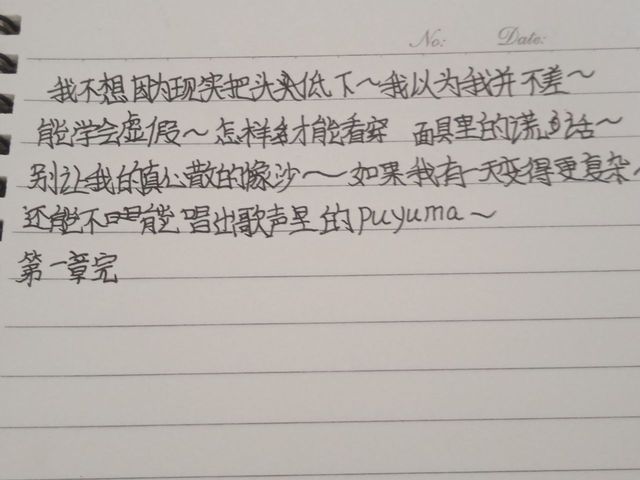 No: Date:
我不想因为现实把头头低下～我以为我并不差～
能学会虚假～怎样才能看穿 面具里的谎话～
别让我的真心散的像沙～如果我有一天变得更复杂～
还能不唱能唱出歌声里的puyuma～
第一章完